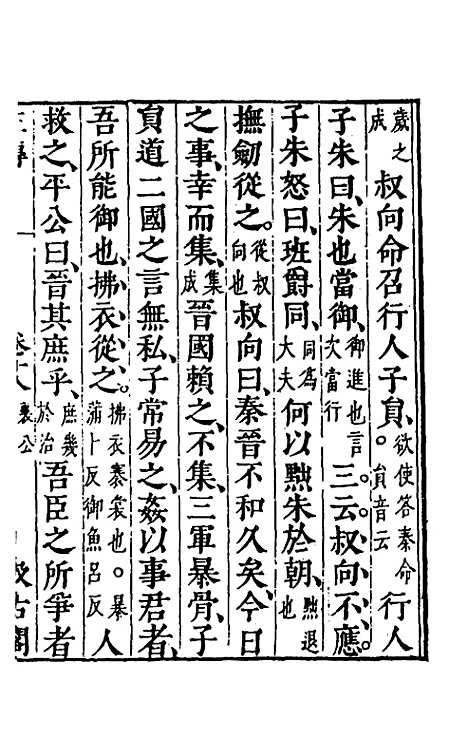 歲之成叔向命召行人子員。欲使答秦命員音云行人
子朱曰、朱也當御、御進也言次當行三云、叔向不應。
子朱怒曰、班爵同、同為大夫何以黜朱於朝、黜退也
撫劒從之。從叔向也叔向曰、秦晉不和久矣、今日
之事、幸而集、集成晉國賴之、不集、三軍暴骨、子
員道二國之言無私、子常易之、姦以事君者、
吾所能御也、拂衣從之。拂衣褰裳也。暴蒲卜反御魚呂反人
救之、平公曰、晉其庶乎、庶幾於治吾臣之所爭者
卷十八 襄公